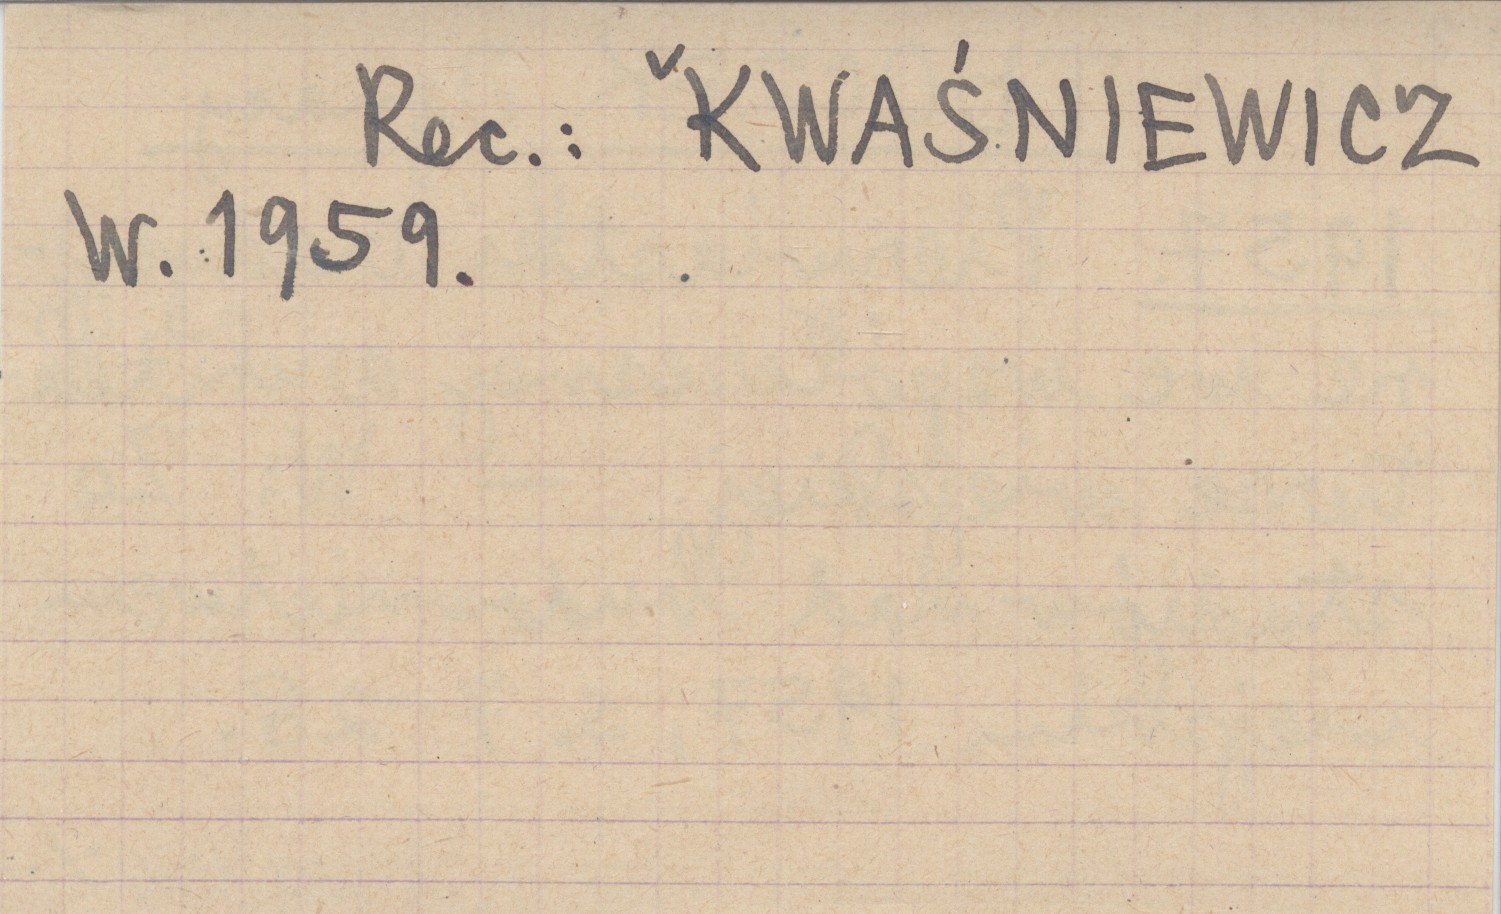 Rec.: ˇKWAŚNIEWICZ
W. 1959.